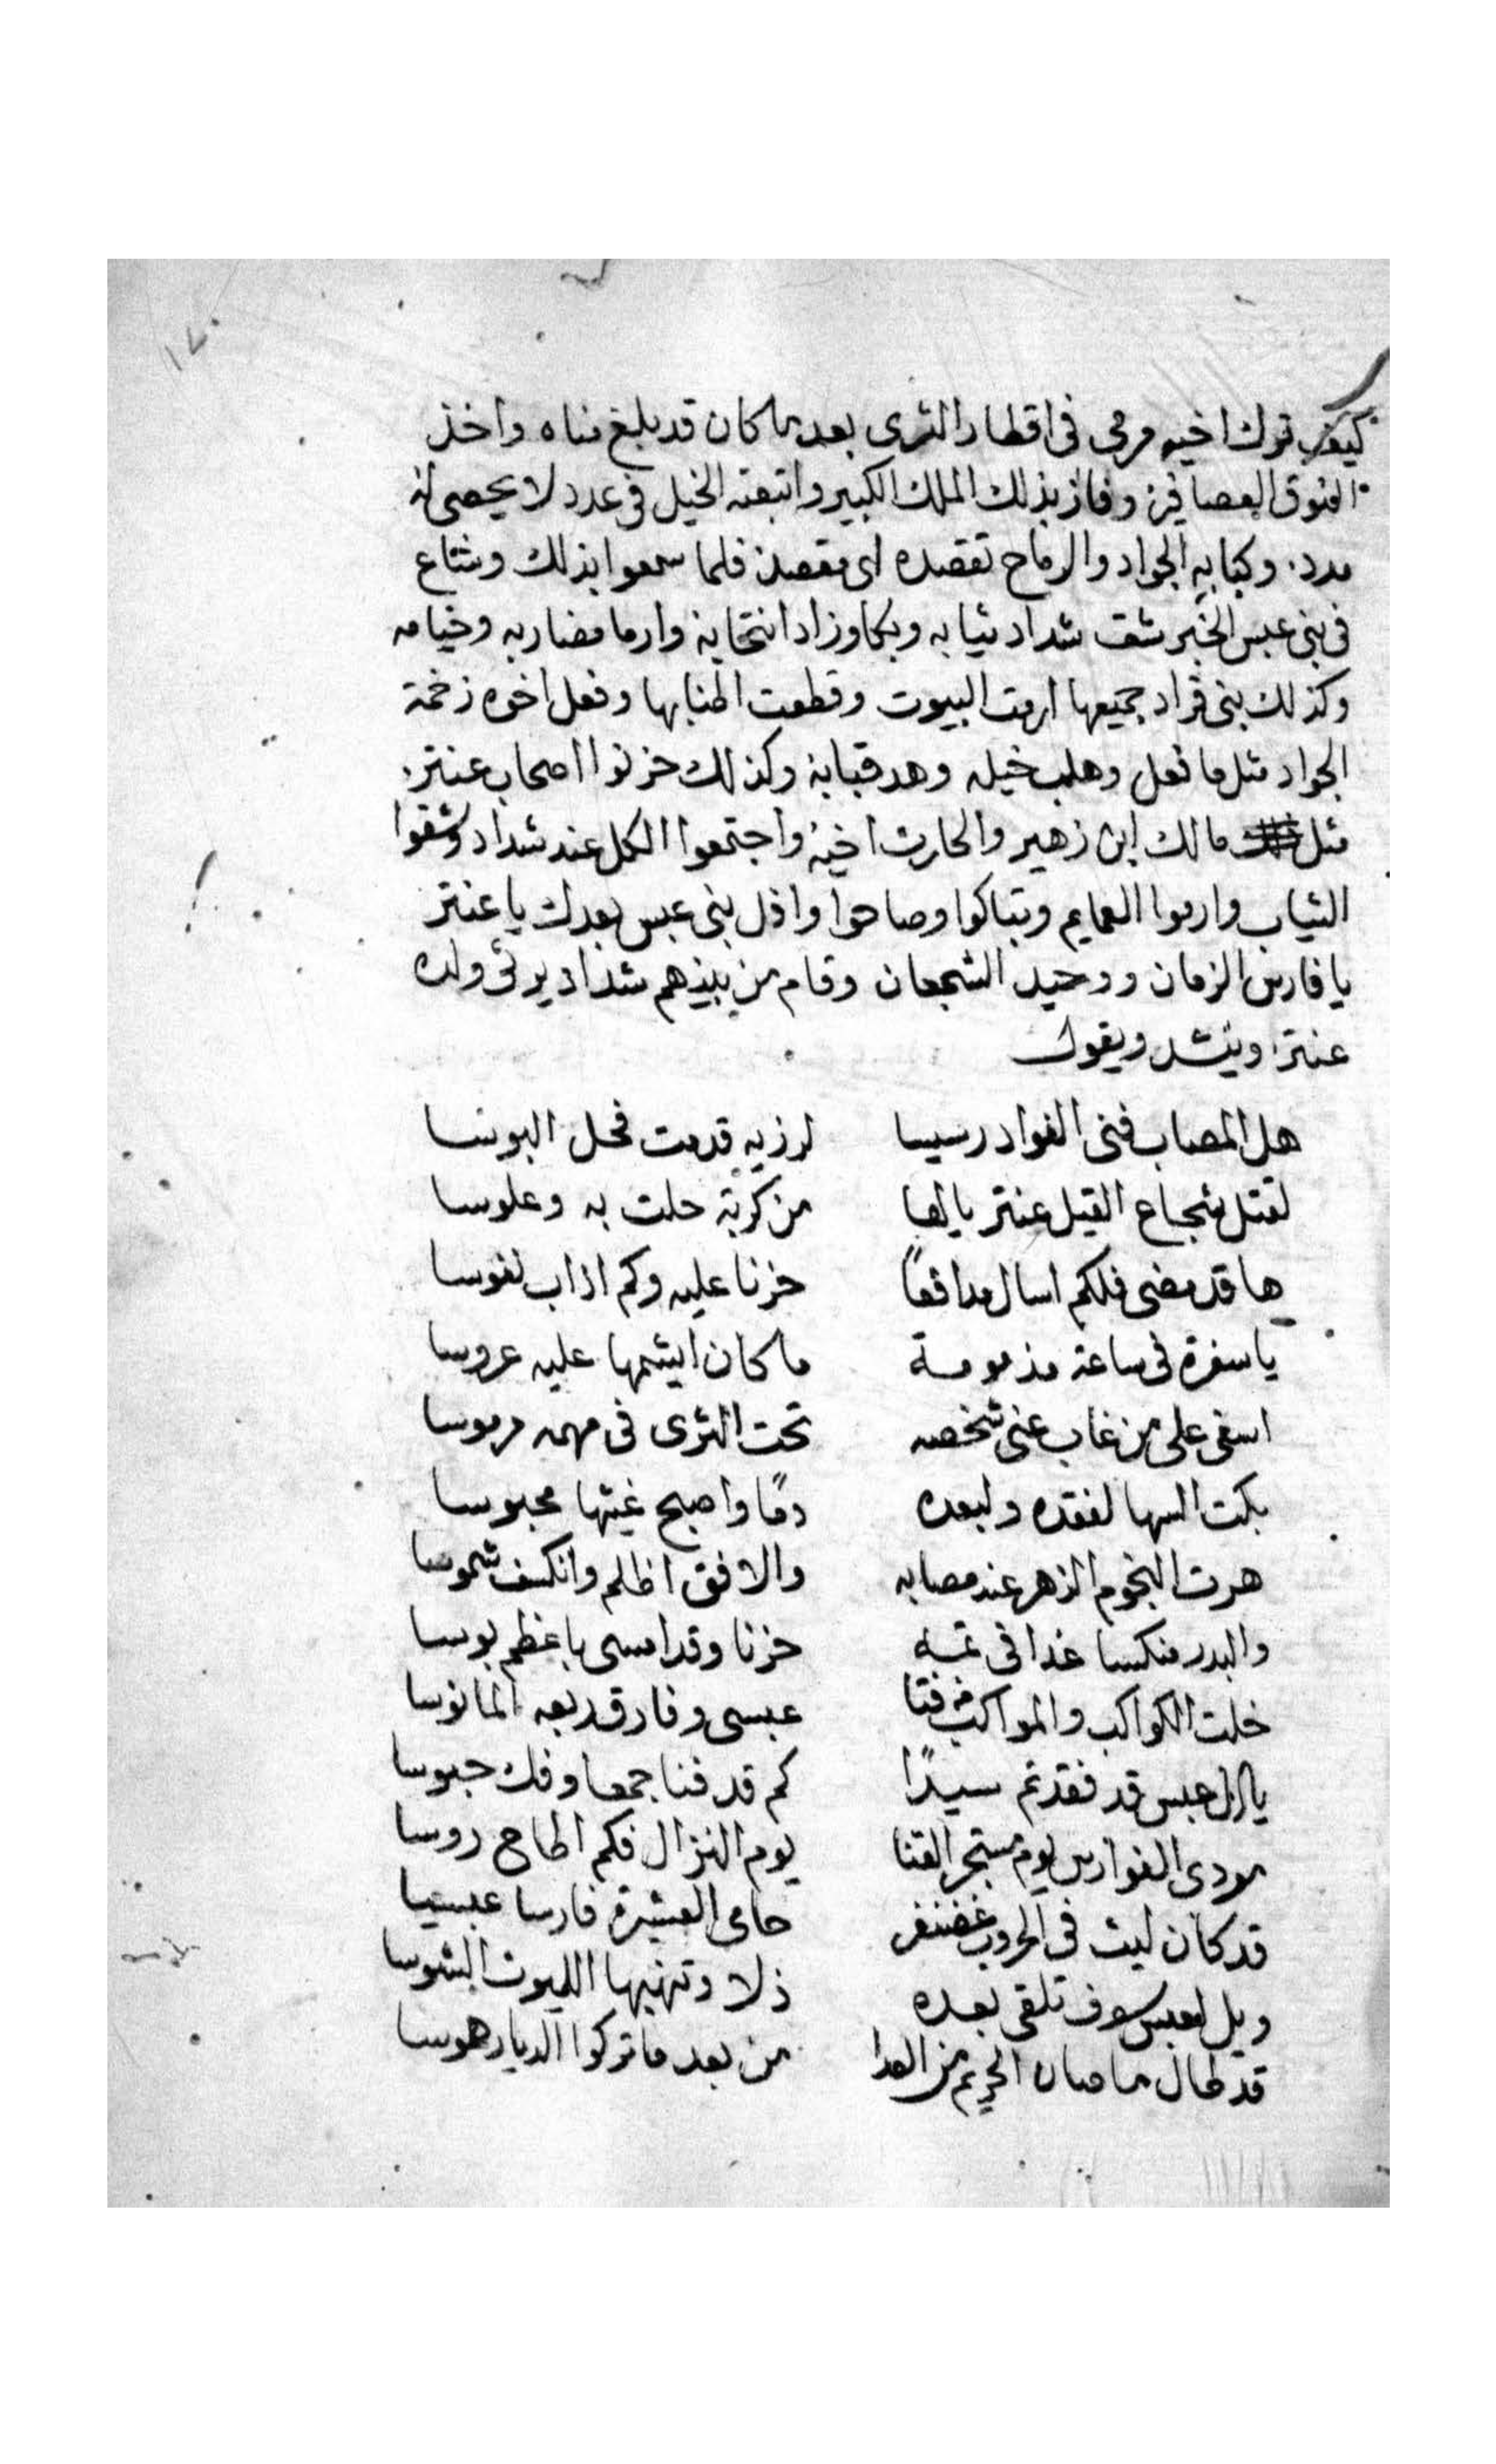 كيف ترك اخيه مرمى فى اقطار الثرى بعد ما كان قد بلغ مناه واخذ
النوق العصافيرة وفاز بذلك الملك الكبير واتبعته الخيل فى عدد لا يحصى له
مدد. وكبا به الجواد والرماح تقصده اى مقصد فلما سمعوا بذلك وشاع
فى بنى عبس الخبر شق شداد ثيابه وبكا وزاد انتحابه وارما مضاربه وخيامه
وكذلك بنى قراد جميعها ارمت البيوت وقطعت اطنابها وفعل اخوه زخمة
الجواد مثل ما فعل وهلب خيله وهد قبابه وكذلك حزنوا اصحاب عنتر.
مثل مالك ابن زهير والحارث اخيه واجتمعوا الكل عند شداد وشقوا
الثياب وارموا العمايم وتباكوا وصاحوا واذل بنى عبس بعدك يا عنتر
يا فارس الزمان ووحيد الشجعان وقام من بينهم شداد يرثى ولده
عنتر وينشد ويقول
هل المصاب فنى الفواد رسيسا لرزيه قدمت فحل البوسا
لقتل شجاع القيل عنتر يالها من كربة حلت به وعلوسا
ها قد مضى فلكم اسال مدافعاً حزنا عليه وكم اذاب نفوسا
يا سفرة فى ساعة مذمومة ما كان ايشمها عليه عروسا
اسفى على من غاب عنى شخصه تحت الثرى فى مهمه مرموسا
بكت السما لفقده ولبعده دمًا واصبح غيثها محبوسا
هرت النجوم الزهر عند مصابه والافق اظلم وانكسف شموسا
والبدر منكسا غدا فى تمه حزنا وقد امسى باعظم بوسا
خلت الكواكب والمواكب من فتا عبسى وفارق ربعه المانوسا
يال عبس قد فقدتم سيدًا كم قد فنا جمعا وفك حبوسا
مودى الفوارس يوم مستجر القنا يوم النزال فكم اطاح روسا
قد كان ليث فى الحروب غضنفر حامى العشيرة فارسا عبسيا
ويل لعبس سوف تلقى بعده ذلا وتهنيها الليوث الشوسا
قد طال ما صان الحريم من العدا من بعد ما تركوا الديار هوسا